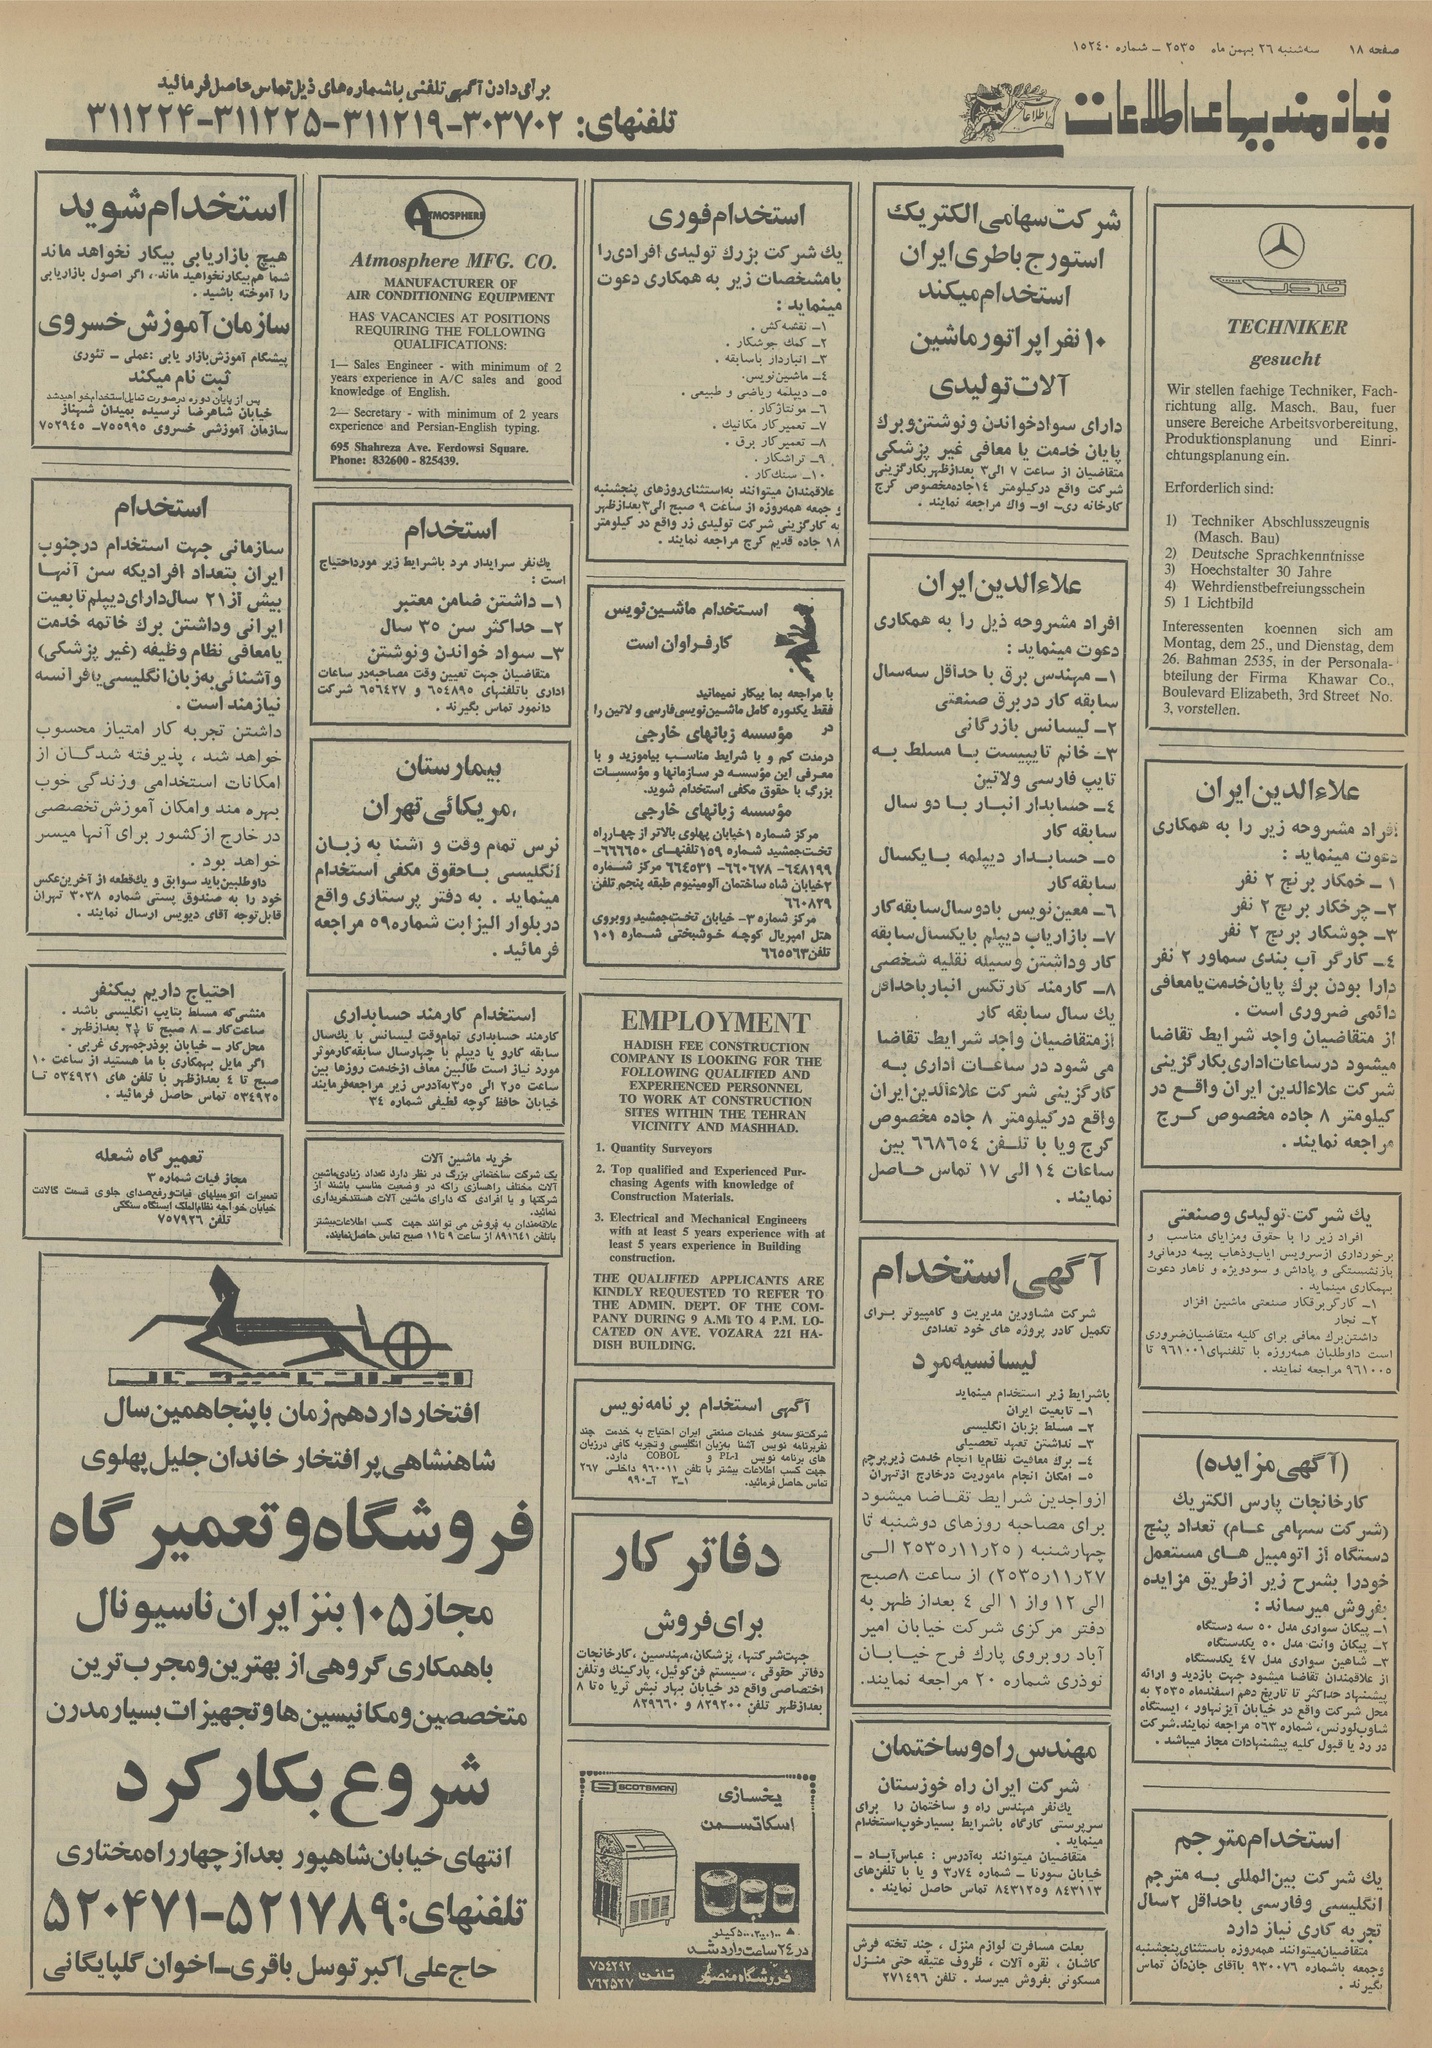 صفحه ۱۸ سه‌شنبه ۲۶ بهمن ماه ۲۵۳۵ – شماره ۱۵۲۴۰
نیازمندیهای اطلاعات
برای دادن آگهی تلفنی با شماره‌های ذیل تماس حاصل فرمائید
تلفنهای: ۳۰۳۷۰۲-۳۱۱۲۱۹-۳۱۱۲۲۵-۳۱۱۲۲۴
TECHNIKER
gesucht
Wir stellen faehige Techniker, Fach-
richtung allg. Masch. Bau, fuer
unsere Bereiche Arbeitsvorbereitung,
Produktionsplanung und Einri-
chtungsplanung ein.
Erforderlich sind:
1) Techniker Abschlusszeugnis
(Masch. Bau)
2) Deutsche Sprachkenntnisse
3) Hoechstalter 30 Jahre
4) Wehrdienstbefreiungsschein
5) 1 Lichtbild
Interessenten koennen sich am
Montag, dem 25., und Dienstag, dem
26. Bahman 2535, in der Personala-
bteilung der Firma Khawar Co.,
Boulevard Elizabeth, 3rd Street No.
3, vorstellen.
علاءالدین ایران
افراد مشروحه زیر را به همکاری
دعوت مینماید :
۱ – خمکار برنج ۲ نفر
۲– چرخکار برنج ۲ نفر
۳– جوشکار برنج ۲ نفر
۴– کارگر آب بندی سماور ۲ نفر
دارا بودن برك پایان خدمت یا معافی
دائمی ضروری است .
از متقاضیان واجد شرایط تقاضا
میشود در ساعات اداری بکارگزینی
شرکت علاءالدین ایران واقع در
کیلومتر ۸ جاده مخصوص کرج
مراجعه نمایند .
یك شرکت تولیدی و صنعتی
افراد زیر را با حقوق و مزایای مناسب و
برخورداری از سرویس ایاب و ذهاب بیمه درمانی و
بازنشستگی و پاداش و سود ویژه و ناهار دعوت
بهمکاری مینماید .
۱– کارگر برقکار صنعتی ماشین افزار
۲– نجار
داشتن برك معافی برای کلیه متقاضیان ضروری
است داوطلبان همه‌روزه با تلفنهای ۹۶۱۰۰۱ تا
۹۶۱۰۰۵ مراجعه نمایند .
(آگهی مزایده)
کارخانجات پارس الکتریك
(شرکت سهامی عام) تعداد پنج
دستگاه از اتومبیل های مستعمل
خود را بشرح زیر از طریق مزایده
بفروش میرساند :
۱– پیکان سواری مدل ۵۰ سه دستگاه
۲– پیکان وانت مدل ۵۰ یکدستگاه
۳– شاهین سواری مدل ۴۷ یکدستگاه
از علاقمندان تقاضا میشود جهت بازدید و ارائه
پیشنهاد حداکثر تا تاریخ دهم اسفندماه ۲۵۳۵ به
محل شرکت واقع در خیابان آیزنهاور ، ایستگاه
شاوب‌لورنس، شماره ۵۶۳ مراجعه نمایند.شرکت
در رد یا قبول کلیه پیشنهادات مجاز میباشد .
استخدام مترجم
یك شرکت بین‌المللی به مترجم
انگلیسی و فارسی با حداقل ۲ سال
تجربه کاری نیاز دارد
متقاضیان میتوانند همه‌روزه باستثنای پنجشنبه
و جمعه با شماره ۹۳۰۰۷۶ با آقای جان‌دان تماس
بگیرند .
شرکت سهامی الکتریك
استورج باطری ایران
استخدام میکند
۱۰ نفر اپراتور ماشین
آلات تولیدی
دارای سواد خواندن و نوشتن و برك
پایان خدمت یا معافی غیر پزشکی
متقاضیان از ساعت ۷ الی ۳ بعدازظهر بکارگزینی
شرکت واقع در کیلومتر ۱۴ جاده مخصوص کرج
کارخانه ری– او– واك مراجعه نمایند .
علاءالدین ایران
افراد مشروحه ذیل را به همکاری
دعوت مینماید :
۱– مهندس برق با حداقل سه سال
سابقه کار در برق صنعتی
۲– لیسانس بازرگانی
۳– خانم تایپیست با مسلط به
تایپ فارسی و لاتین
۴– حسابدار انبار با دو سال
سابقه کار
۵– حسابدار دیپلمه با یکسال
سابقه کار
۶– معین‌نویس با دو سال سابقه کار
۷– بازاریاب دیپلم با یکسال سابقه
کار و داشتن وسیله نقلیه شخصی
۸– کارمند کارتکس انبار با حداقل
یك سال سابقه کار
از متقاضیان واجد شرایط تقاضا
می شود در ساعات اداری به
کارگزینی شرکت علاءالدین ایران
واقع در کیلومتر ۸ جاده مخصوص
کرج و یا با تلفن ۶۶۸۶۵۴ بین
ساعات ۱۴ الی ۱۷ تماس حاصل
نمایند .
آگهی استخدام
شرکت مشاورین مدیریت و کامپیوتر برای
تکمیل کادر پروژه های خود تعدادی
لیسانسیه مرد
باشرایط زیر استخدام مینماید
۱– تابعیت ایران
۲– مسلط بزبان انگلیسی
۳– نداشتن تعهد تحصیلی
۴– برك معافیت نظام یا انجام خدمت زیر پرچم
۵– امکان انجام ماموریت در خارج از تهران
از واجدین شرایط تقاضا میشود
برای مصاحبه روزهای دوشنبه تا
چهارشنبه ( ۲۵ر۱۱ر۲۵۳۵ الی
۲۷ر۱۱ر۲۵۳۵) از ساعت ۸صبح
الی ۱۲ و از ۱ الی ۴ بعداز ظهر به
دفتر مرکزی شرکت خیابان امیر
آباد روبروی پارك فرح خیابان
نوذری شماره ۲۰ مراجعه نمایند.
مهندس راه و ساختمان
شرکت ایران راه خوزستان
یکنفر مهندس راه و ساختمان را برای
سرپرستی کارگاه باشرایط بسیار خوب استخدام
مینماید .
متقاضیان میتوانند به‌آدرس : عباس‌آباد –
خیابان سورنا – شماره ۷۴ر۳ و یا با تلفن‌های
۸۴۳۱۱۳ و ۸۴۳۱۲۵ تماس حاصل نمایند .
بعلت مسافرت لوازم منزل ، چند تخته فرش
کاشان ، نقره آلات ، ظروف عتیقه حتی منزل
مسکونی بفروش میرسد . تلفن ۲۷۱۴۹۶
استخدام فوری
یك شرکت بزرك تولیدی افرادی را
با مشخصات زیر به همکاری دعوت
مینماید :
۱– نقشه‌کش .
۲– کمك جوشکار .
۳– انباردار باسابقه .
۴– ماشین‌نویس.
۵– دیپلمه ریاضی و طبیعی .
۶– مونتاژکار .
۷– تعمیر کار مکانیك .
۸– تعمیرکار برق .
۹– تراشکار .
۱۰– سنك‌کار .
علاقمندان میتوانند به‌استثنای روزهای پنجشنبه
و جمعه همه‌روزه از ساعت ۹ صبح الی ۳ بعدازظهر
به کارگزینی شرکت تولیدی زر واقع در کیلومتر
۱۸ جاده قدیم کرج مراجعه نمایند .
استخدام ماشین‌نویس
کار فراوان است
با مراجعه بما بیکار نمیمانید
فقط یکدوره کامل ماشین‌نویسی فارسی و لاتین را
در
مؤسسه زبانهای خارجی
در مدت کم و با شرایط مناسب بیاموزید و با
معرفی این مؤسسه در سازمانها و مؤسسات
بزرگ با حقوق مکفی استخدام شوید.
مؤسسه زبانهای خارجی
مرکز شماره ۱ خیابان پهلوی بالاتر از چهارراه
تخت‌جمشید شماره ۱۵۹ تلفنهای ۶۶۶۶۵۰-
۶۴۸۱۹۹-۶۶۰۶۷۸- ۶۶۴۵۳۱ مرکز شماره
۲ خیابان شاه ساختمان آلومینیوم طبقه پنجم تلفن
۶۶۰۸۲۹
مرکز شماره ۳- خیابان تخت‌جمشید روبروی
هتل امپریال کوچه خوشبختی شماره ۱۰۱
تلفن ۶۶۵۵۶۳
EMPLOYMENT
HADISH FEE CONSTRUCTION
COMPANY IS LOOKING FOR THE
FOLLOWING QUALIFIED AND
EXPERIENCED PERSONNEL
TO WORK AT CONSTRUCTION
SITES WITHIN THE TEHRAN
VICINITY AND MASHHAD.
1. Quantity Surveyors
2. Top qualified and Experienced Pur-
chasing Agents with knowledge of
Construction Materials.
3. Electrical and Mechanical Engineers
with at least 5 years experience with at
least 5 years experience in Building
construction.
THE QUALIFIED APPLICANTS ARE
KINDLY REQUESTED TO REFER TO
THE ADMIN. DEPT. OF THE COM-
PANY DURING 9 A.M. TO 4 P.M. LO-
CATED ON AVE. VOZARA 221 HA-
DISH BUILDING.
آگهی استخدام برنامه‌نویس
شرکت توسعه و خدمات صنعتی ایران احتیاج به خدمت چند
نفر برنامه نویس آشنا به‌زبان انگلیسی و تجربه کافی در زبان
های برنامه نویس PL-1 و COBOL دارد.
جهت کسب اطلاعات بیشتر با تلفن ۹۶۰۰۱۱ داخلی ۲۶۷
تماس حاصل فرمائید. ۱–۳ آ–۹۹۰
دفاتر کار
برای فروش
جهت شرکتها، پزشکان، مهندسین ، کارخانجات
دفاتر حقوقی ، سیستم فن‌کوئیل، پارکینك و تلفن
اختصاصی واقع در خیابان بهار نبش ثریا ۵ تا ۸
بعدازظهر تلفن ۸۲۹۲۰۰ و ۸۲۹۶۶۰
SCOTSMAN
یخسازی
اسکاتسمن
در ۲۴ ساعت وارد شد
فروشگاه منصور تلفن ۷۵۴۲۹۲
۷۶۲۵۲۷
ATMOSPHERE
Atmosphere MFG. CO.
MANUFACTURER OF
AIR CONDITIONING EQUIPMENT
HAS VACANCIES AT POSITIONS
REQUIRING THE FOLLOWING
QUALIFICATIONS:
1— Sales Engineer - with minimum of 2
years experience in A/C sales and good
knowledge of English.
2— Secretary - with minimum of 2 years
experience and Persian-English typing.
695 Shahreza Ave. Ferdowsi Square.
Phone: 832600 - 825439.
استخدام
یك‌نفر سرایدار مرد باشرایط زیر مورد احتیاج
است :
۱– داشتن ضامن معتبر
۲– حداکثر سن ۳۵ سال
۳– سواد خواندن و نوشتن
متقاضیان جهت تعیین وقت مصاحبه در ساعات
اداری با تلفنهای ۶۵۴۸۹۵ و ۶۵۶۴۲۷ شرکت
دانمود تماس بگیرند .
بیمارستان
امریکائی تهران
نرس تمام وقت و آشنا به زبان
انگلیسی با حقوق مکفی استخدام
مینماید . به دفتر پرستاری واقع
در بلوار الیزابت شماره ۵۹ مراجعه
فرمائید .
استخدام کارمند حسابداری
کارمند حسابداری تمام‌وقت لیسانس با یك‌سال
سابقه کار و یا دیپلم با چهارسال سابقه کار موثر
مورد نیاز است طالبین معاف از خدمت روزها بین
ساعت ۲ر۵ الی ۳ر۵ به‌آدرس زیر مراجعه فرمایند
خیابان حافظ کوچه لطیفی شماره ۳۴
خرید ماشین آلات
یك شرکت ساختمانی بزرگ در نظر دارد تعداد زیادی ماشین
آلات مختلف راهسازی را که در وضعیت مناسب باشند از
شرکتها و یا افرادی که دارای ماشین آلات هستند خریداری
نمائید.
علاقمندان به فروش می توانند جهت کسب اطلاعات بیشتر
با تلفن ۸۹۱۶۴۱ از ساعت ۹ تا ۱۱ صبح تماس حاصل نمایند.
استخدام شوید
هیچ بازاریابی بیکار نخواهد ماند
شما هم بیکار نخواهید ماند ، اگر اصول بازاریابی
را آموخته باشید .
سازمان آموزش خسروی
پیشگام آموزش بازار یابی : عملی – تئوری
ثبت نام میکند
پس از پایان دوره در صورت تمایل استخدام خواهید شد
خیابان شاهرضا نرسیده بمیدان شهناز
سازمان آموزشی خسروی ۷۵۵۹۹۵– ۷۵۲۹۴۵
استخدام
سازمانی جهت استخدام در جنوب
ایران بتعداد افرادیکه سن آنها
بیش از ۲۱ سال دارای دیپلم تابعیت
ایرانی و داشتن برك خاتمه خدمت
یا معافی نظام وظیفه (غیر پزشکی)
و آشنائی به زبان انگلیسی یا فرانسه
نیازمند است .
داشتن تجربه کار امتیاز محسوب
خواهد شد ، پذیرفته شدگان از
امکانات استخدامی و زندگی خوب
بهره مند و امکان آموزش تخصصی
در خارج از کشور برای آنها میسر
خواهد بود .
داوطلبین باید سوابق و یك‌قطعه از آخرین عکس
خود را به صندوق پستی شماره ۳۰۳۸ تهران
قابل توجه آقای دیویس ارسال نمایند .
احتیاج داریم بیکنفر
منشی که مسلط بتایپ انگلیسی باشد .
ساعت کار – ۸ صبح تا ۴½ بعدازظهر .
محل کار – خیابان بوذرجمهری غربی .
اگر مایل بهمکاری با ما هستید از ساعت ۱۰
صبح تا ۴ بعدازظهر با تلفن های ۵۳۴۹۲۱ تا
۵۳۴۹۲۵ تماس حاصل فرمائید .
تعمیرگاه شعله
مجاز فیات شماره ۳
تعمیرات اتومبیلهای فیات و رفع صدای جلوی قسمت گالانت
خیابان خواجه نظام‌الملك ایستگاه سنگکی
تلفن ۷۵۷۹۲۶
ایران ناسیونال
افتخار دارد همزمان با پنجاهمین سال
شاهنشاهی پر افتخار خاندان جلیل پهلوی
فروشگاه و تعمیرگاه
مجاز ۱۰۵ بنز ایران ناسیونال
با همکاری گروهی از بهترین و مجرب‌ترین
متخصصین و مکانیسین‌ها و تجهیزات بسیار مدرن
شروع بکار کرد
انتهای خیابان شاهپور بعد از چهارراه مختاری
تلفنهای: ۵۲۱۷۸۹–۵۲۰۴۷۱
حاج علی اکبر توسل باقری – اخوان گلپایگانی